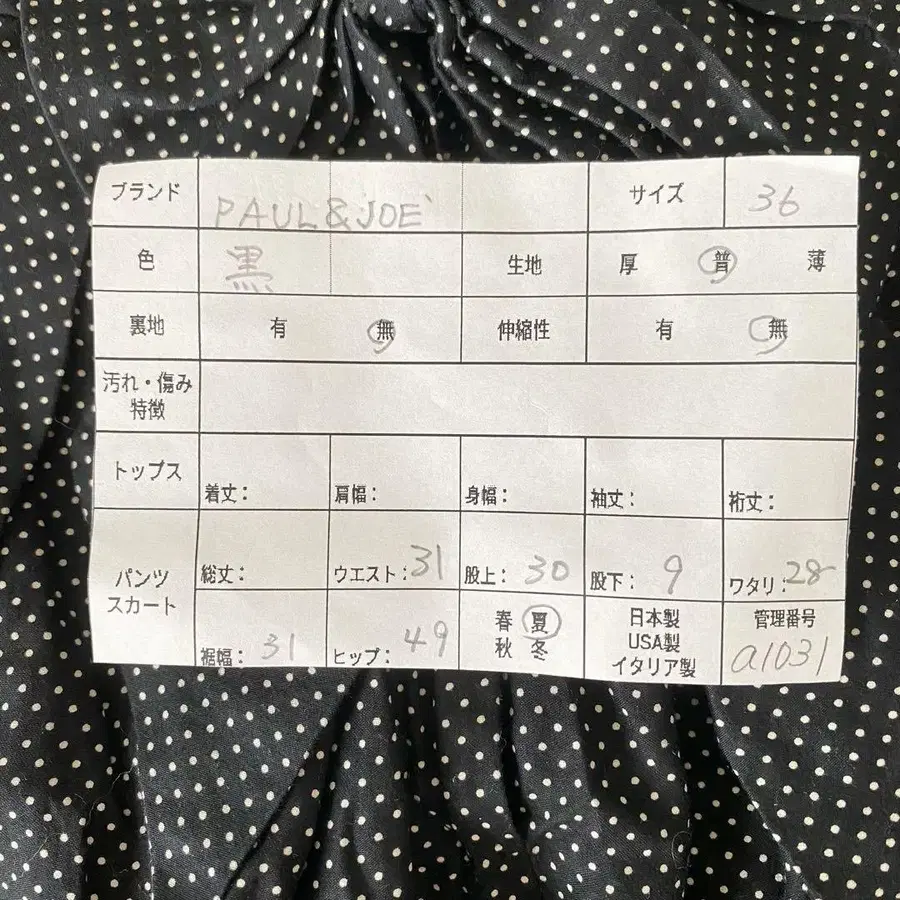 ブランド PAUL & JOE サイズ 36
色 黒 生地 厚 普 薄
裏地 有 無 伸縮性 有 無
汚れ・傷み
特徴
トップス 着丈: 肩幅: 身幅: 袖丈: 裄丈:
パンツ
スカート
総丈: ウエスト:31 股上:30 股下:9 ワタリ:28
裾幅:31 ヒップ:49
春 夏
秋 冬
日本製
USA製
イタリア製
管理番号
a1031